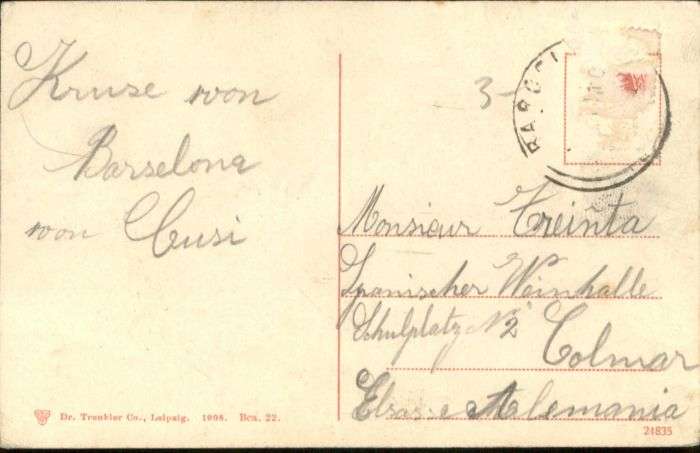 Kruse von
Barselona
von Cusi
3-
BARCEL
Monsieur Treinta
Spanischer Weinhalle
Schulplatz N 2
Colmar
Elsas e Alemania
Dr. Trenkler Co., Leipzig. 1908. Bcn. 22.
24835